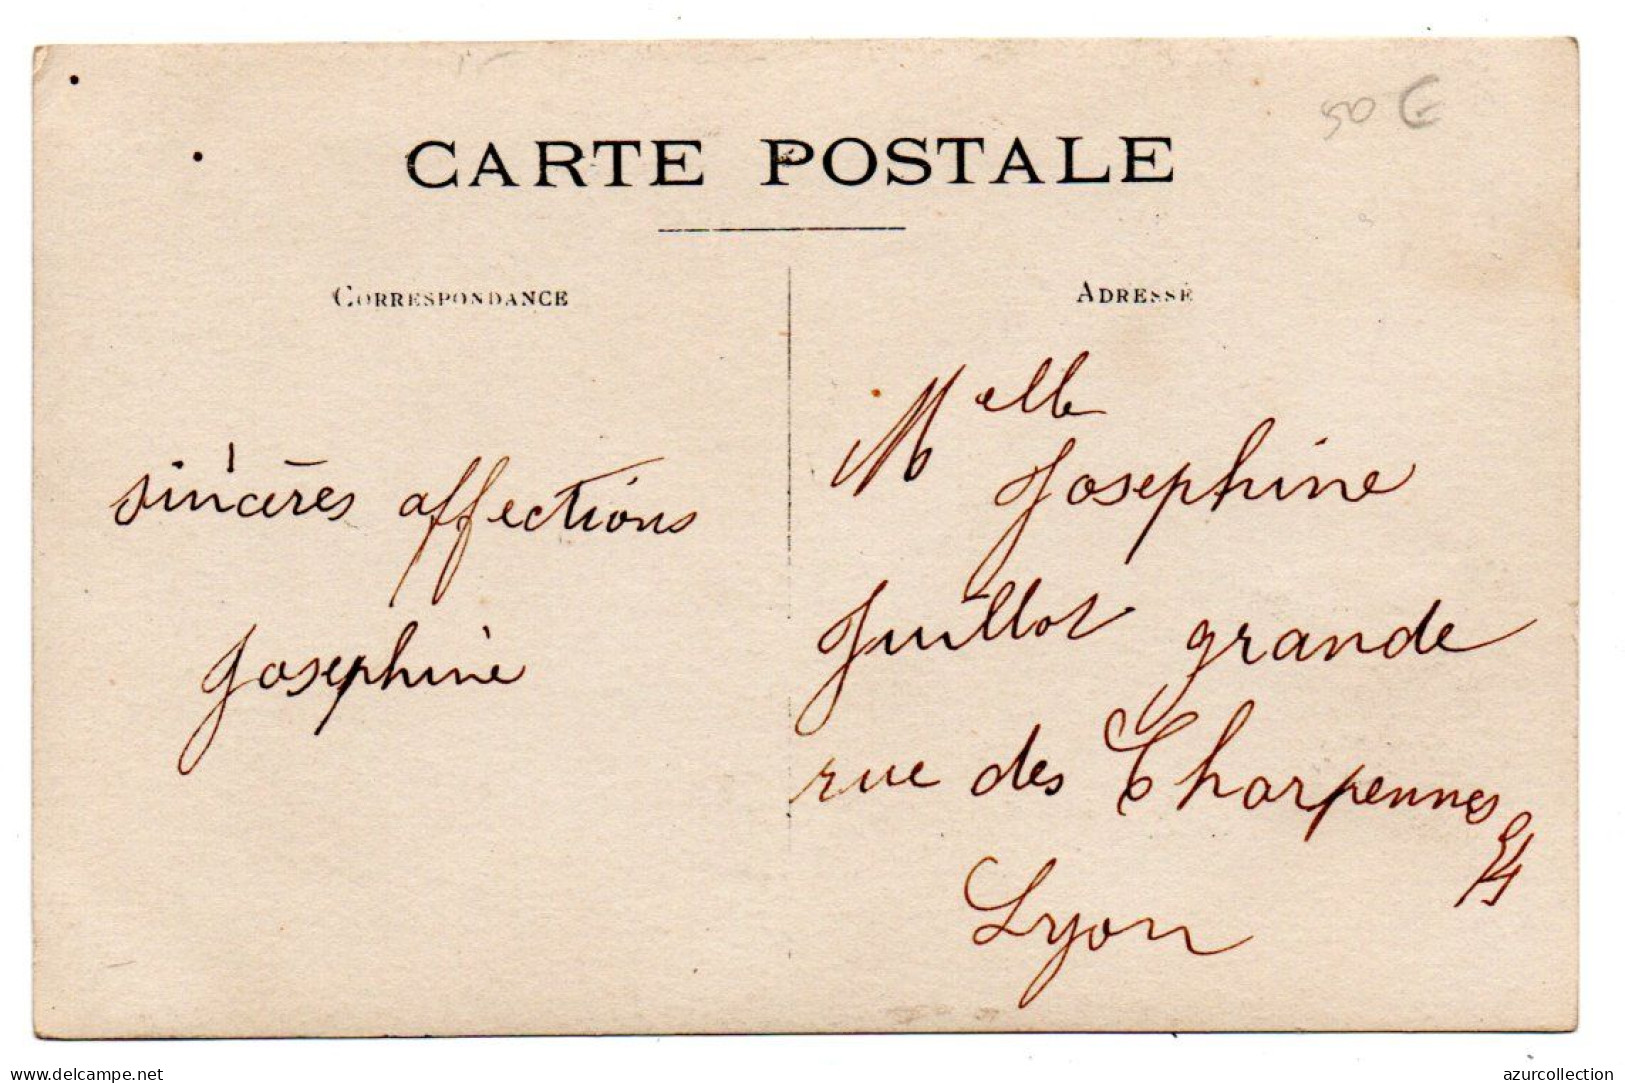 50 €
CARTE POSTALE
CORRESPONDANCE
sincères affections
Josephine
ADRESSE
Melle
Josephine
Guillot grande
rue des Charpennes
Lyon
www.delcampe.net
azurcollection